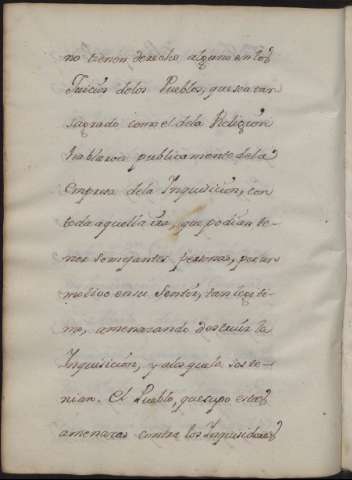 no tienen derecho alguno en los
Juicios delos Pueblos, que sea tan
sagrado como el dela Religion
hablaron publicamente dela
Empresa dela Inquisicion, con
toda aquella ira, que podian te-
ner semejantes personas, por un
motivo en su sentir, tan legiti-
mo, amenazando destruir la
Inquisicion, y alos que la soste-
nian. El Pueblo, que supo estas
amenazas contra los Inquisidores